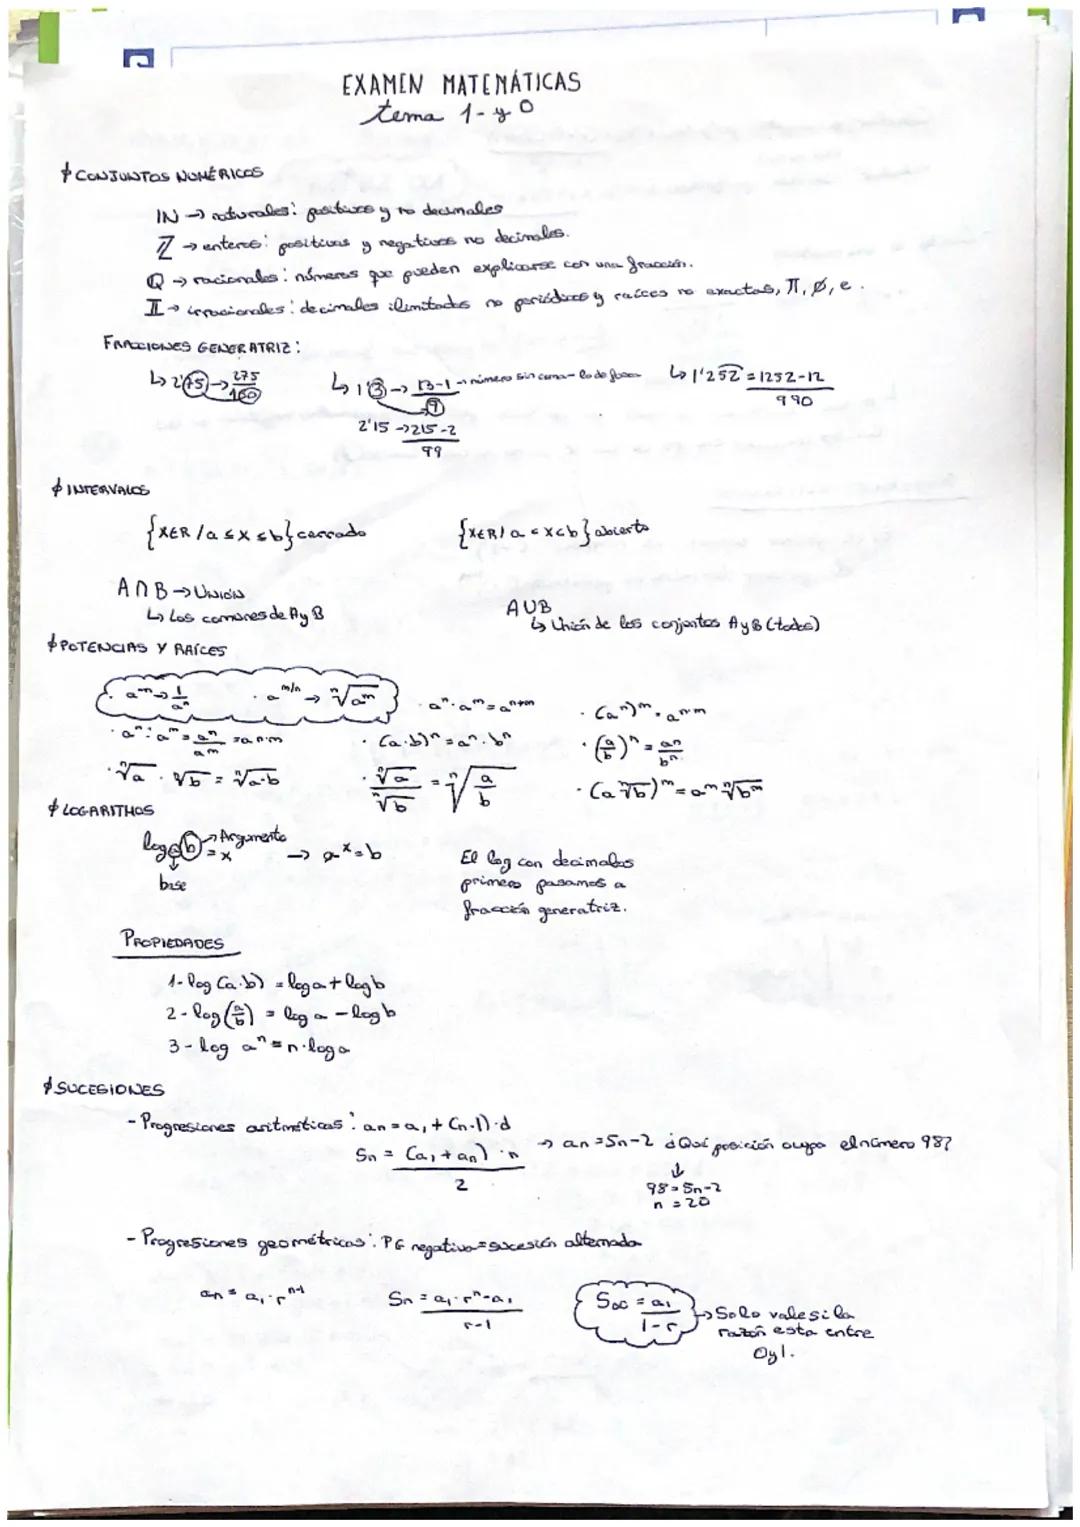 EXAMEN MATEMÁTICAS
tema 1- y 0
CONJUNTOS NUMÉRICOS
IN → naturales: positivos y no decimales
Z → enteros: positivos y negativos no decimales.
Q → racionales: números que pueden explicarse con una fracción.
II → irracionales: decimales ilimitados no periódicos y raíces no exactas, π, Ø, e.
FRACCIONES GENERATRIZ:
↳ 2'75 → 275/100
↳ 1'3 → 13-1/9 → número sin coma - lo de fuera
↳ 1'252 = 1252-12/990
2'15 → 215-2/99
INTERVALOS
{x∈R / a ≤ x ≤ b} cerrado
{x∈R / a < x < b} abierto
A∩B → UNIÓN
↳ Los comunes de A y B
AUB
↳ Unión de los conjuntos A y B (todos)
POTENCIAS Y RAÍCES
· a⁻ⁿ → 1/aⁿ · a^m/n → ⁿ√a^m · aⁿ · a^m = a^n+m · (aⁿ)^m = a^n·m
· aⁿ : a^m = aⁿ/a^m = a^n·m · (a·b)ⁿ = aⁿ·bⁿ · (a/b)ⁿ = aⁿ/bⁿ
· ⁿ√a · ⁿ√b = ⁿ√a·b · ⁿ√a/ⁿ√b = ⁿ√a/b · (a ⁿ√b)^m = a^m ⁿ√b^m
LOGARITMOS
log a b = x → Argumento → a^x = b
base
El log con decimales
primero pasamos a
fracción generatriz.
PROPIEDADES
1- log (a·b) = log a + log b
2- log (a/b) = log a - log b
3- log aⁿ = n·log a
SUCESIONES
- Progresiones aritméticas: an = a₁ + (n-1)·d
Sn = (a₁ + an)·n/2
→ an = 5n-2 ¿Qué posición ocupa el número 98?
↓
98 = 5n-2
n = 20
- Progresiones geométricas: PG negativa = sucesión alternada
an = a₁·r^n-1
Sn = a₁·rⁿ-a₁/r-1
S∞ = a₁/1-r → Solo vale si la
razón esta entre
0 y 1.